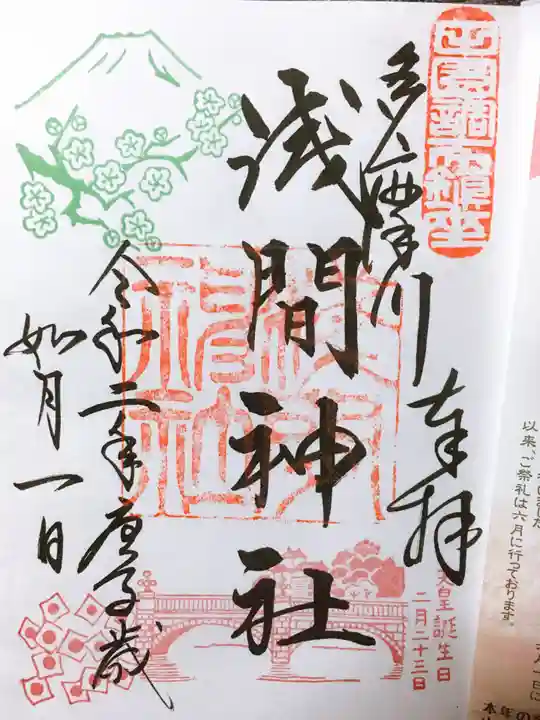 田園調布鎮座
多摩川
奉拝
浅間神社
令和二年庚子歳
如月一日
天皇誕生日
二月二十三日
以来、ご祭礼は六月に行っております。